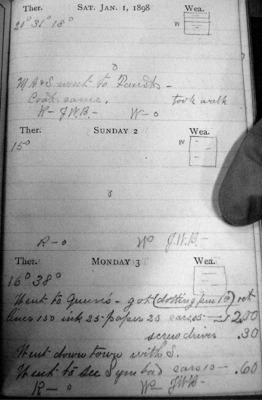 Ther. SAT. JAN. 1, 1898 Wea.
20° 31° 18° W
M A & S went to Fundts -
Cook came. took walk
R - J.W.B. - W - o
Ther. SUNDAY 2 Wea.
15° W
R - o W J.W.B. -
Ther. MONDAY 3 Wea.
16° 38°
Went to Gunn's - got (dotting pen 1.10) rot
lines 130 ink 25 - paper 25 cars 05 - 2.00
screw driver .30
Went down town with S.
Went to see Symbad cars 10 - .60
R - o W - J.W.B -